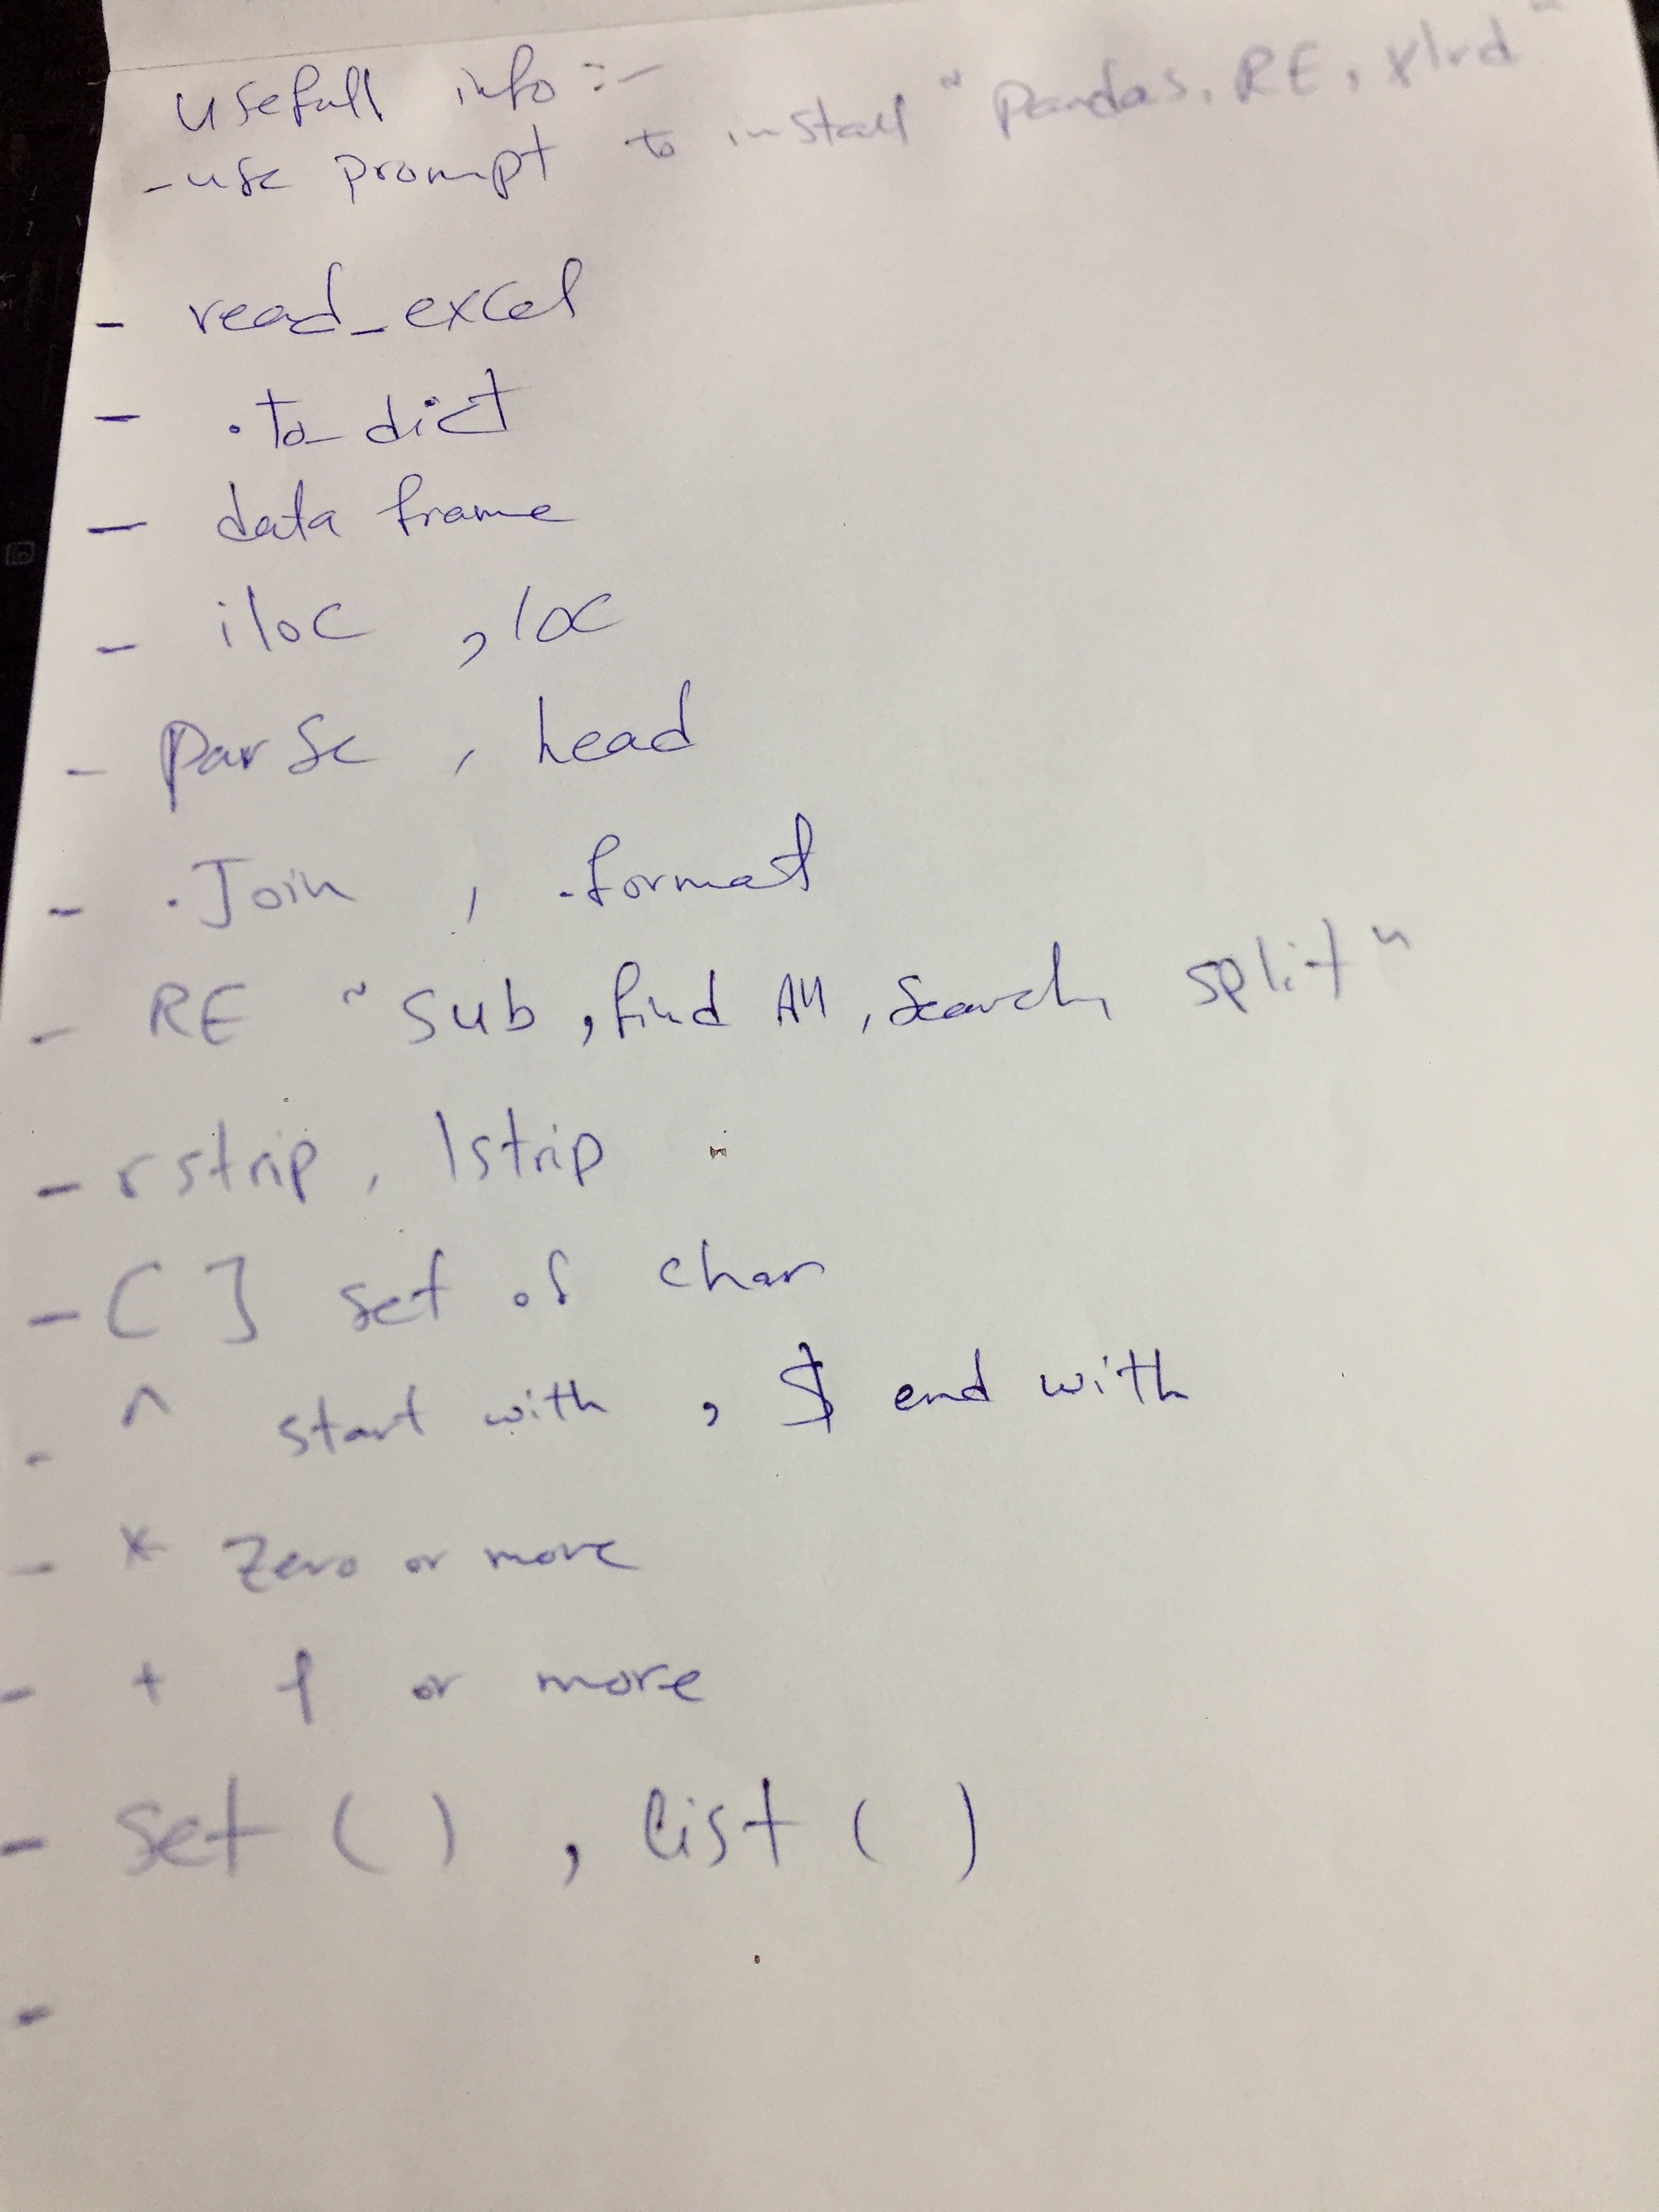 Usefull info :-
- use prompt to install " Pandas, RE, xlrd "
- read_excel
- .to_dict
- data frame
- iloc , loc
- Parse , head
- .Join , .format
- RE " sub , find All , search, split "
- rstrip , lstrip
- [ ] set of char
- ^ start with , $ end with
- * Zero or more
- + 1 or more
- set ( ) , list ( )
-